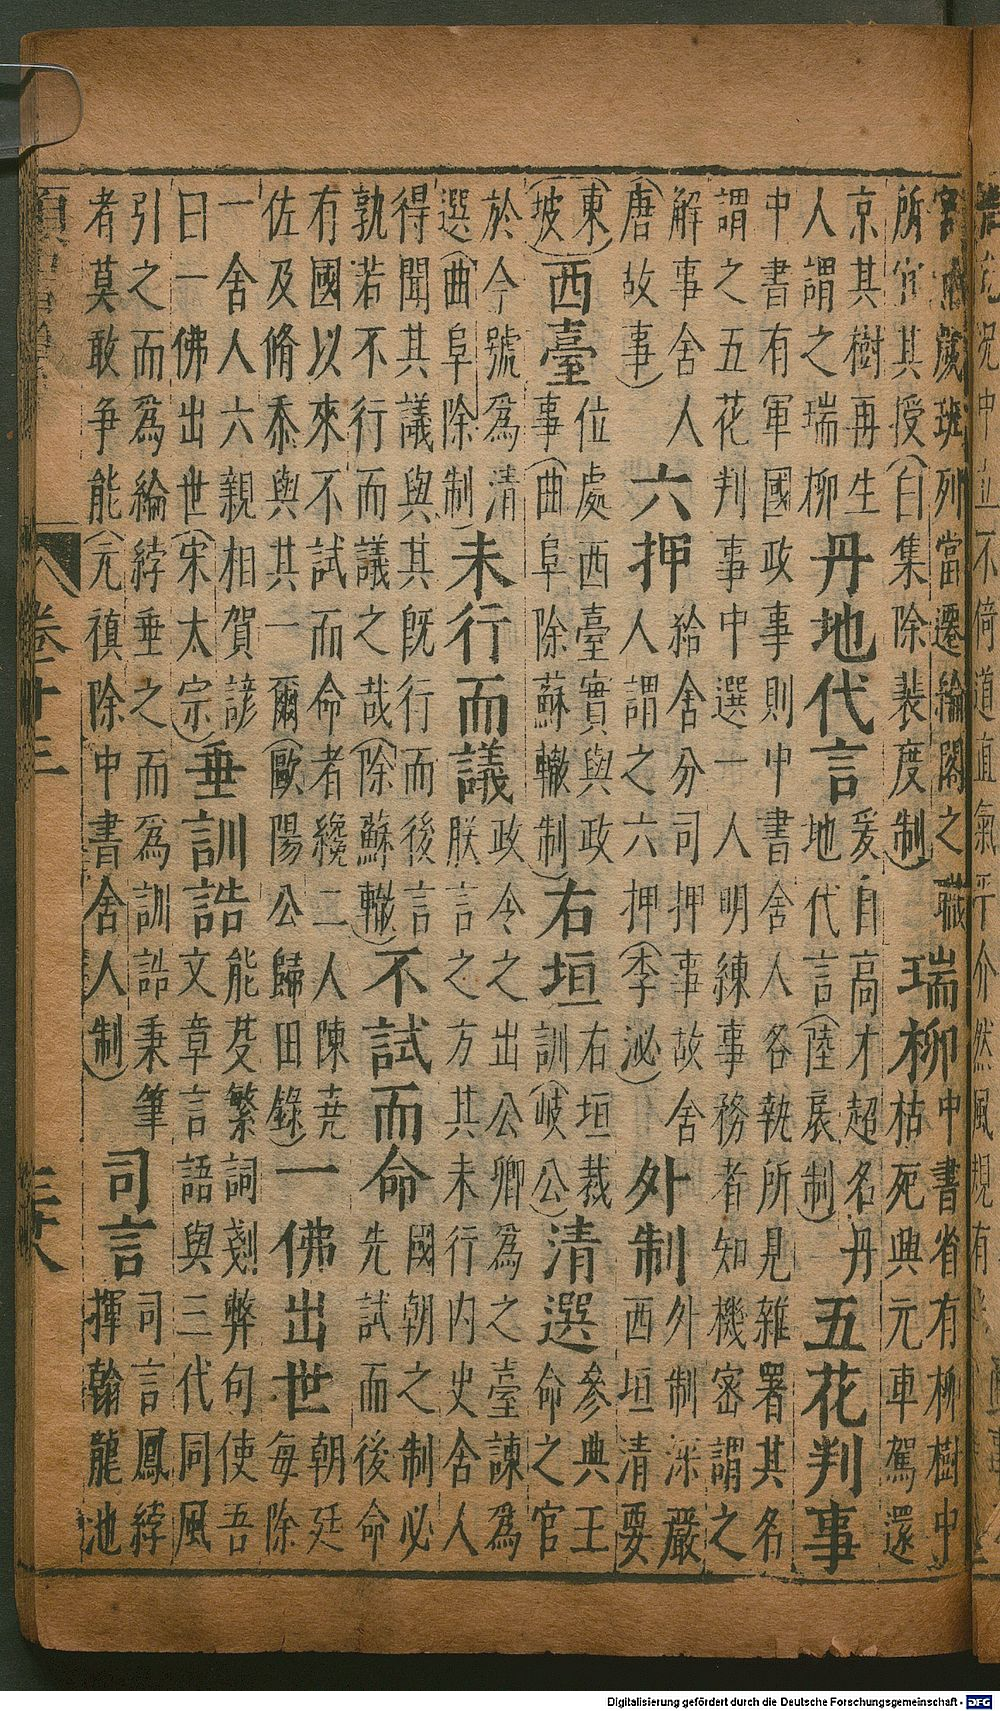 歲班列當遷綸閣之職
所宜其授(白集除裴度制)
瑞柳
中書省有柳樹中
枯死興元車駕還
京其樹再生
人謂之瑞柳
丹地代言
爰自高才超名丹
地代言(陸扆制)
五花判事
中書有軍國政事則中書舍人各執所見雜署其名
謂之五花判事中選一人明練事務者知機密謂之
解事舍人
(唐故事)
六押
給舍分司押事故舍
人謂之六押(李泌)
外制
外制深嚴
西垣清要
(東
坡)
西臺
位處西臺實與政
事(曲阜除蘇轍制)
右垣
右垣裁
訓(岐公)
清選
參典王
命之官
於今號爲清
選(曲阜除制)
未行而議
政令之出公卿爲之臺諫爲
朕言之方其未行内史舍人
得聞其議與其旣行而後言
孰若不行而議之哉(除蘇轍)
不試而命
國朝之制必
先試而後命
有國以來不試而命者纔二人陳堯
佐及脩忝與其一爾(歐陽公歸田錄)
一佛出世
朝廷
每除
一舍人六親相賀諺
曰一佛出世(宋太宗)
垂訓誥
能芟繁詞剗弊句使吾
文章言語與三代同風
引之而爲綸綍垂之而爲訓誥秉筆
者莫敢爭能(元稹除中書舍人制)
司言
司言鳳綍
揮翰龍池
卷
Digitalisierung gefördert durch die Deutsche Forschungsgemeinschaft - DFG